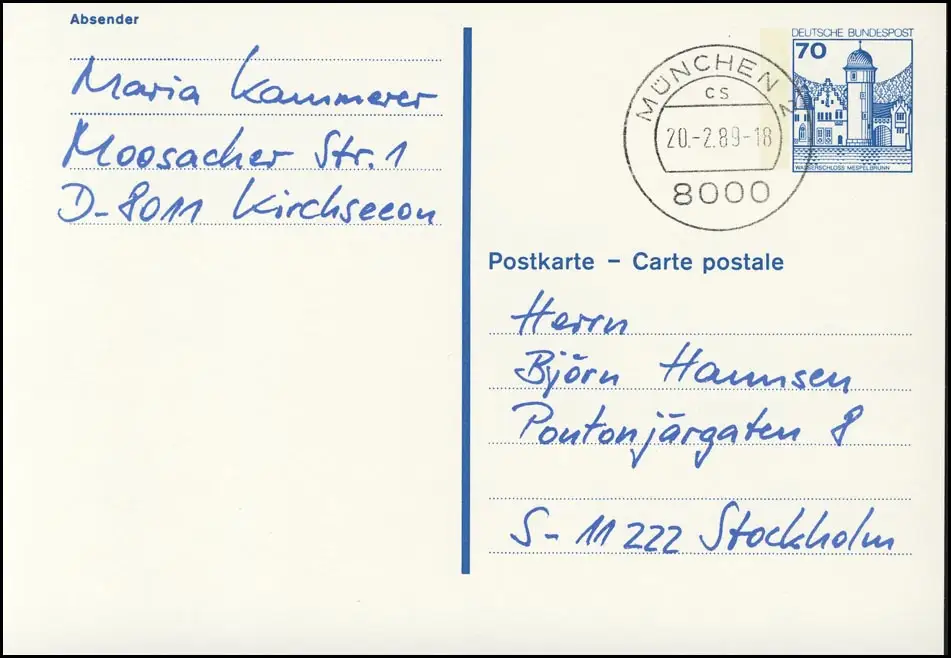 Absender
Maria Kammerer
Moosacher Str. 1
D-8011 Kirchseeon
DEUTSCHE BUNDESPOST
70
WASSERSCHLOSS MESPELBRUNN
MÜNCHEN 2
CS
20.-2.89-18
8000
Postkarte – Carte postale
Herrn
Björn Hannsen
Pontonjärgaten 8
S-11 222 Stockholm